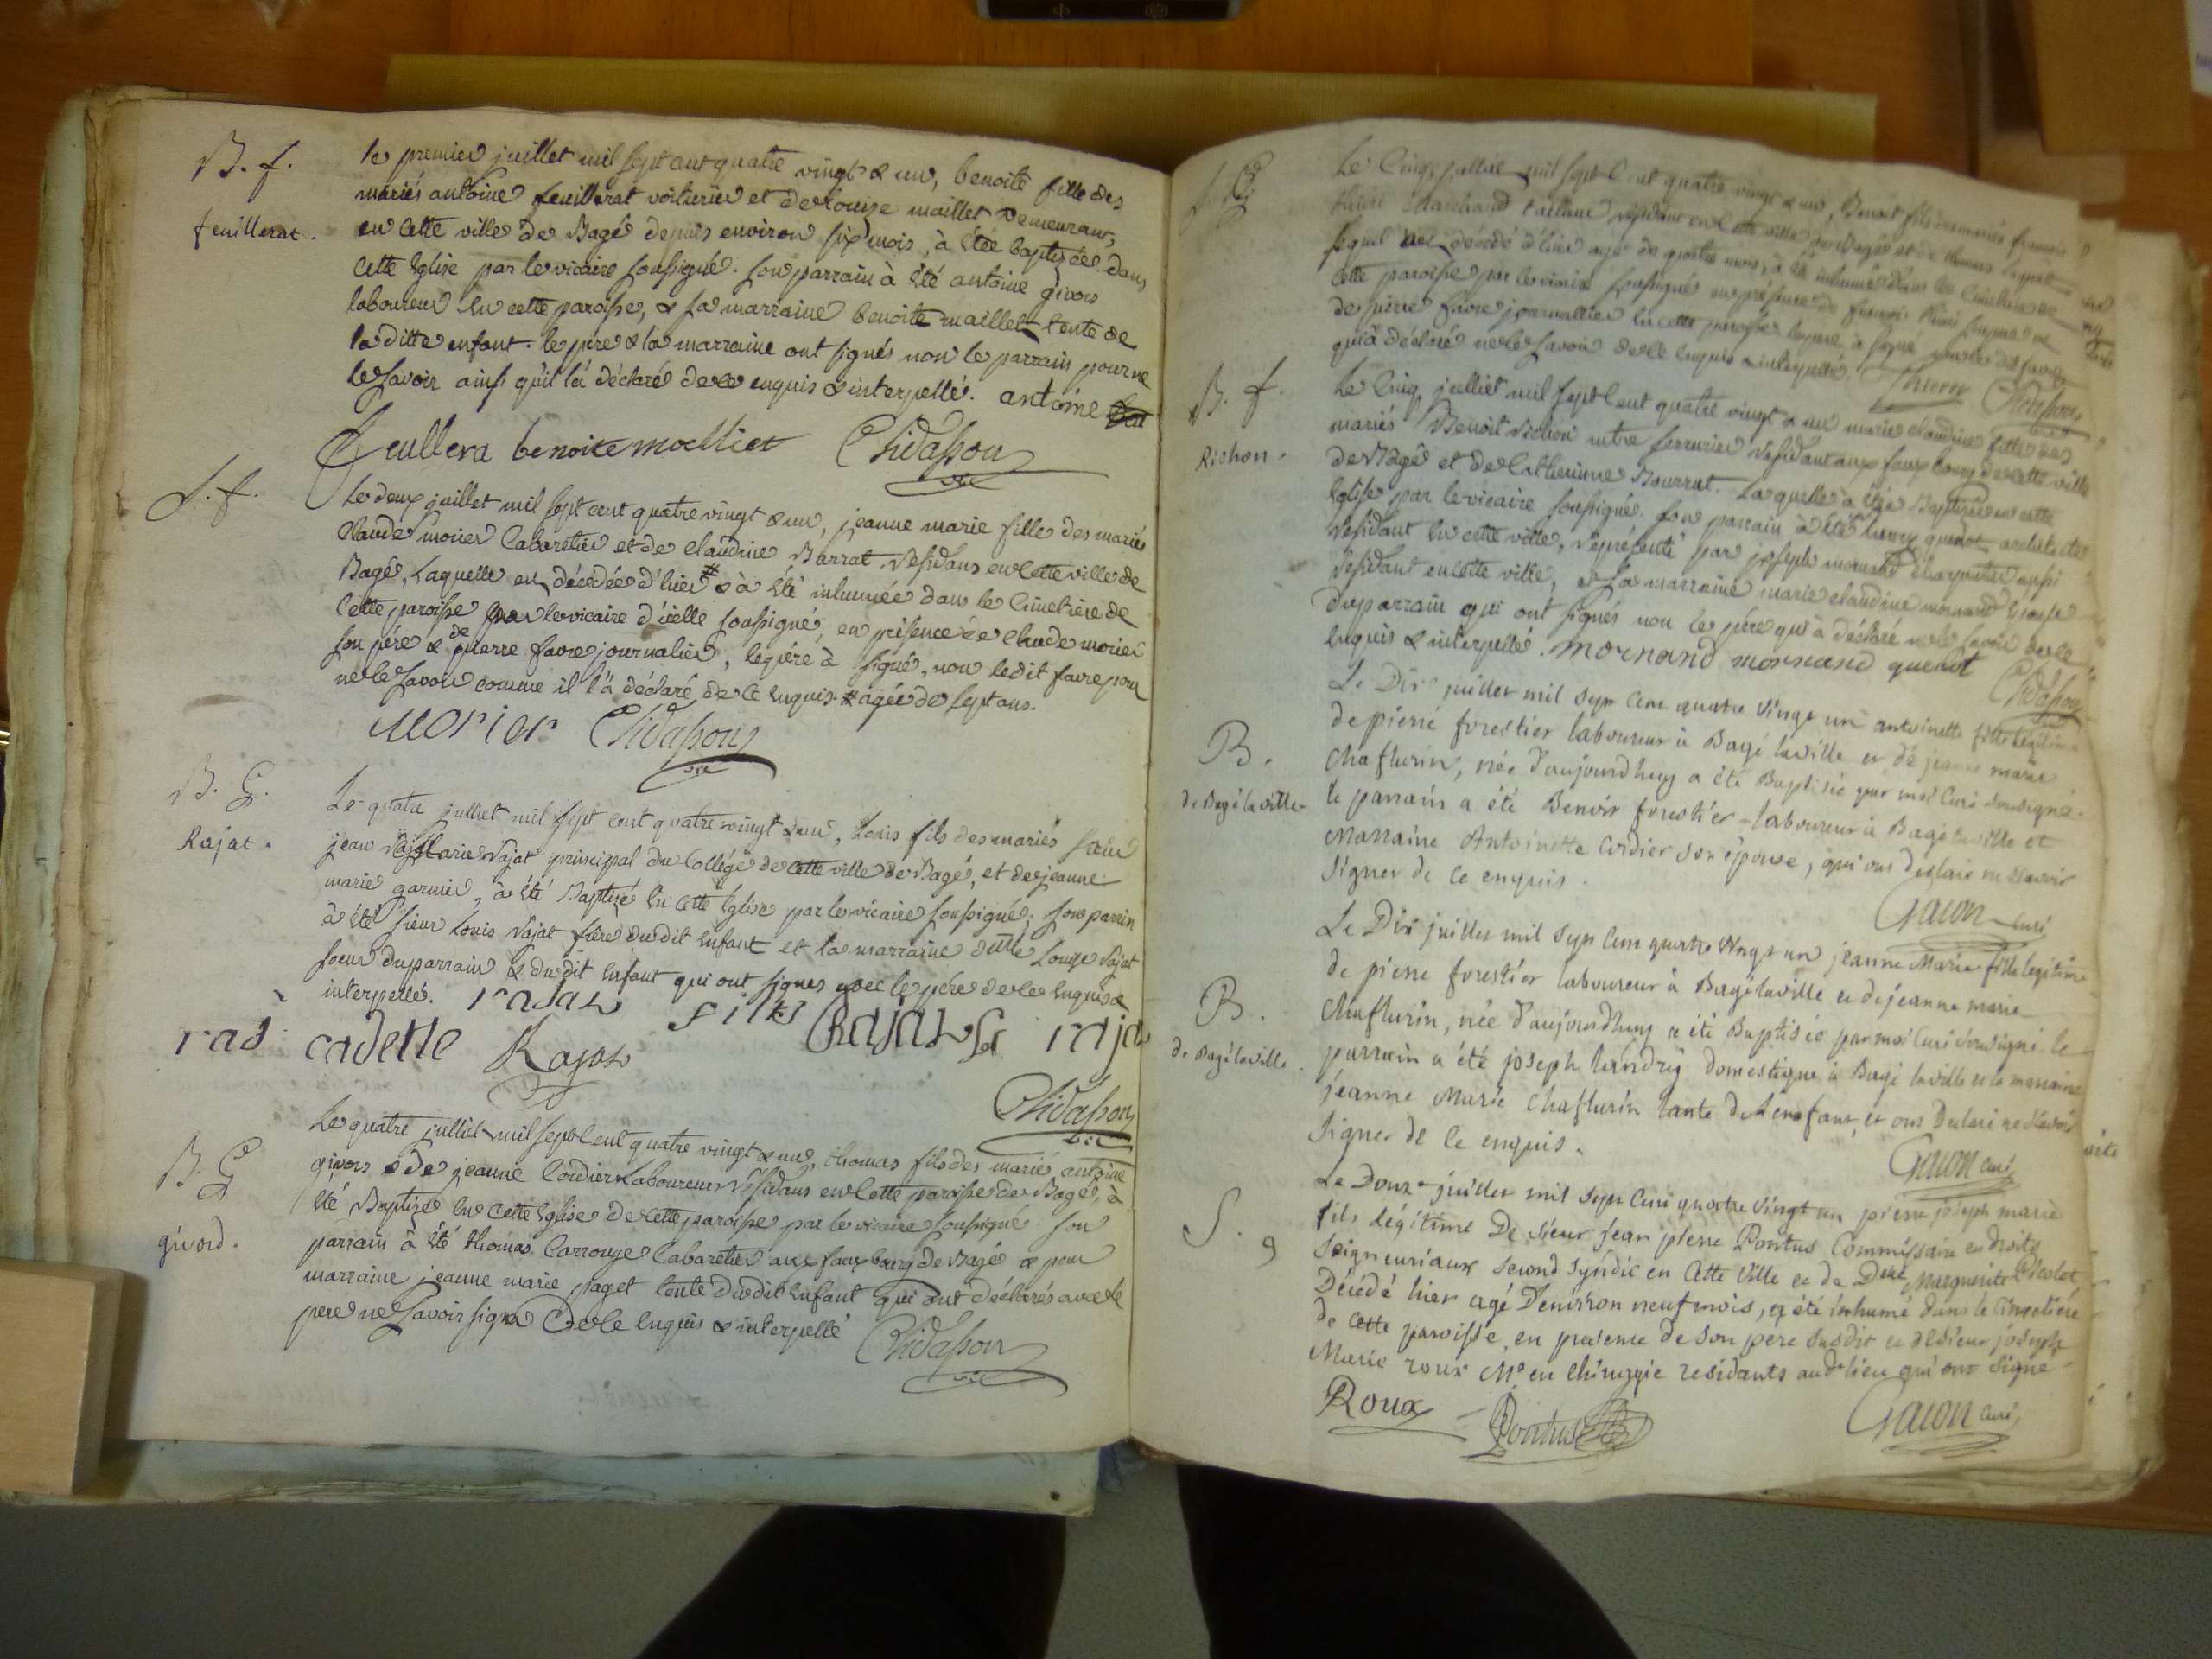 B. f.
feuillerat.
le premier juillet mil sept cent quatre vingt & un, benoite fille des
mariés antoine feuillerat voiturier et de louise maillet demeurans,
en cette ville de Bagé depuis environ six mois, à étée baptisée dans
cette Eglise par le vicaire soussigné. son parrain à été antoine givors
laboureur en cette paroisse, & sa marraine benoite maillet tente de
la ditte enfant. le père & la marraine ont signés non le parrain pour ne
le savoir ainsi qu'il l'à déclaré de ce enquis & interpellé. antoine
feullera benoite moellier Chidasson
vic
S. f.
Le deux juillet mil sept cent quatre vingt & un, jeanne marie fille des mariés
Claude morier Cabaretier et de claudine Barrat residans en cette ville de
Bagé, Laquelle est décédée d'hier # & à été inhumée dans le Cimetière de
cette paroisse par le vicaire d'icelle soussigné, en présence de claude morier
son père & de pierre favre journalier, le père à signé, non ledit favre pour
ne le savoir comme il l'à déclaré de ce enquis. # agée de sept ans.
morier Chidasson
vic
B. G.
Rajat.
Le quatre julliet mil sept cent quatre vingt & un, Louis fils des mariés sieur
jean marie Rajat principal du Collége de cette ville de Bagé, et de jeanne
marie garnier, à été Baptisé en cette Eglise par le vicaire soussigné; son parrin
à été sieur Louis Rajat frère dudit enfant et la marraine dlle Louise Rajat
soeur du parrain & dudit enfant qui ont signés avec le père de ce enquis &
interpellé. rajat fils Rajat raja
cadette Rajat
Chidasson
vic
B. G
givord.
Le quatre julliet mil sept cent quatre vingt & un, thomas fils des mariés antoine
givors & de jeanne Cordier Laboureurs residans en cette paroisse de Bagé, à
été Baptisé en cette Eglise de cette paroisse par le vicaire soussigné. son
parrain à été thomas Carrouge Cabaretier aux faux bourg de Bagé & pour
marraine jeanne marie paget tente dudit enfant qui ont déclarés avec le
pere ne savoir signer de ce enquis & interpellé Chidasson
vic
Le Cinq julliet mil sept Cent quatre vingt & un, Benoit fils des mariés francois
marchand tailleur résidant en cette ville de Bagé et de
lequel est décédé d'hier agé de quatre mois, à été inhumé dans le Cimetiere de
cette paroisse par le vicaire soussigné en présence de francois son pere &
de pierre favre journallier en cette paroisse le pere à signé non ledit favre
qui à déclaré ne le savoir de ce enquis & interpellé. Chidasson
B. f.
Richon.
Le Cinq julliet mil sept Cent quatre vingt & un marie claudine fille des
mariés Benoit Richon mtre serrurier résidant aux faux bourg de cette ville
de Bagé et de Catherinne Bourrut. Laquelle a étée Baptisée en cette
Eglise par le vicaire soussigné. son parrain à été quenot architecte
résidant en cette ville, représenté par joseph mornand charpentier aussi
résidant en cette ville, et sa marraine marie claudine mornand Epouse
du parrain qui ont signés non le père qui à déclaré ne le savoir de ce
enquis & interpellé. mornand mornand quenot
Chidasson
B.
de Bagé la ville
Le Dix juillet mil sept cent quatre vingt un antoinette fille légitime
de pierre forestier laboureur à Bagé la ville et de jeanne marie
Chaflurin, née d'aujourdhuy a été Baptisée par moi Curé soussigné.
le parrain a été Benoit forestier laboureur à Bagé la ville et
Marraine Antoinette Cordier son épouse, qui ont déclaré ne savoir
signer de ce enquis.
Gacon curé
B.
de Bagé la ville.
Le Dix juillet mil sept cent quatre vingt un jeanne Marie fille légitime
de pierre forestier laboureur à Bagé la ville et de jeanne marie
Chaflurin, née d'aujourdhuy a été Baptisée par moi Curé soussigné le
parrain a été joseph landry domestique à Bagé la ville et la marraine
jeanne Marie Chaflurin tante de l'enfant, et ont Declaré ne savoir
signer de ce enquis.
Gacon curé
S. g
Le Douze juillet mil sept cent quatre vingt un pierre joseph marie
fils légitime De sieur jean pierre Pontus Commissaire en droits
Seigneuriaux second syndic en Cette Ville et de Dlle Marguerite Picolet
Décédé hier agé D'environ neuf mois, a été inhumé dans le Cimetiére
de Cette paroisse, en presence de son pere susdit et de sieur joseph
Marie roux Me en Chirurgie residants aud. lieu qui ont signé
Roux Pontus Gacon curé